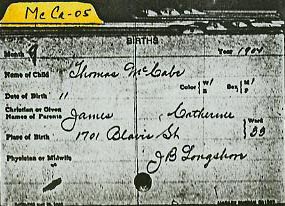 McCa-05
BIRTHS
Month 9 Year 1904
Name of Child Thomas McCabe
Date of Birth 11 Color W/B Sex M/F
Christian or Given Names of Parents James, Catherine
Place of Birth 1701 St Ward 33
Physician or Midwife J B